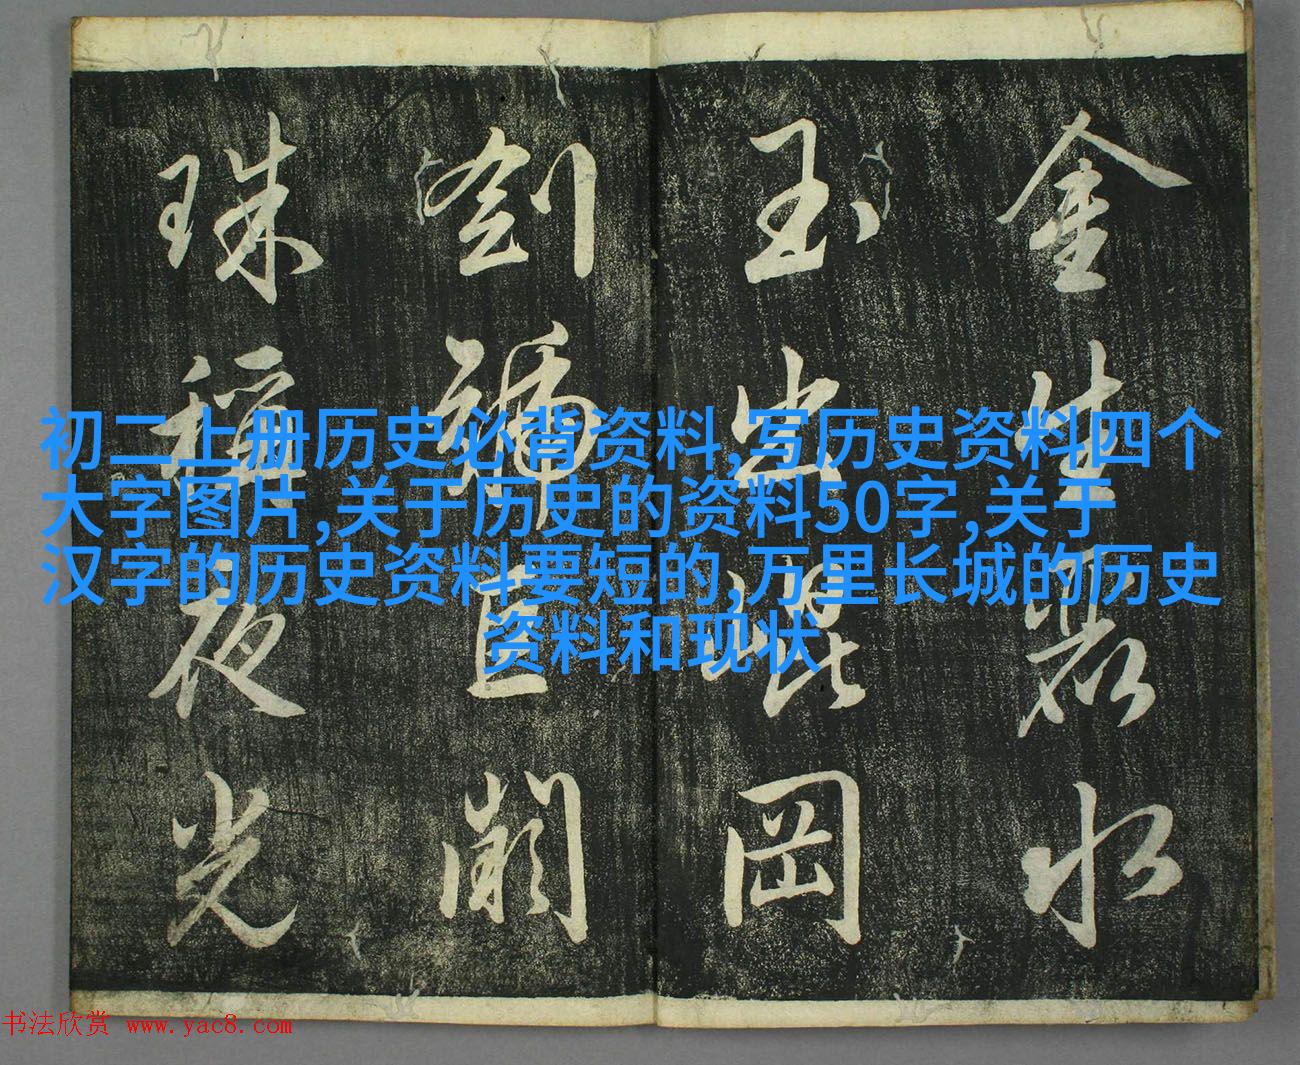 金生麗水
玉出崐岡
劍號巨闕
珠稱夜光
初二上册历史必背资料,写历史资料四个
大字图片,关于历史的资料50字,关于
汉字的历史资料要短的,万里长城的历史
资料和现状
书法欣赏 www.yac8.com